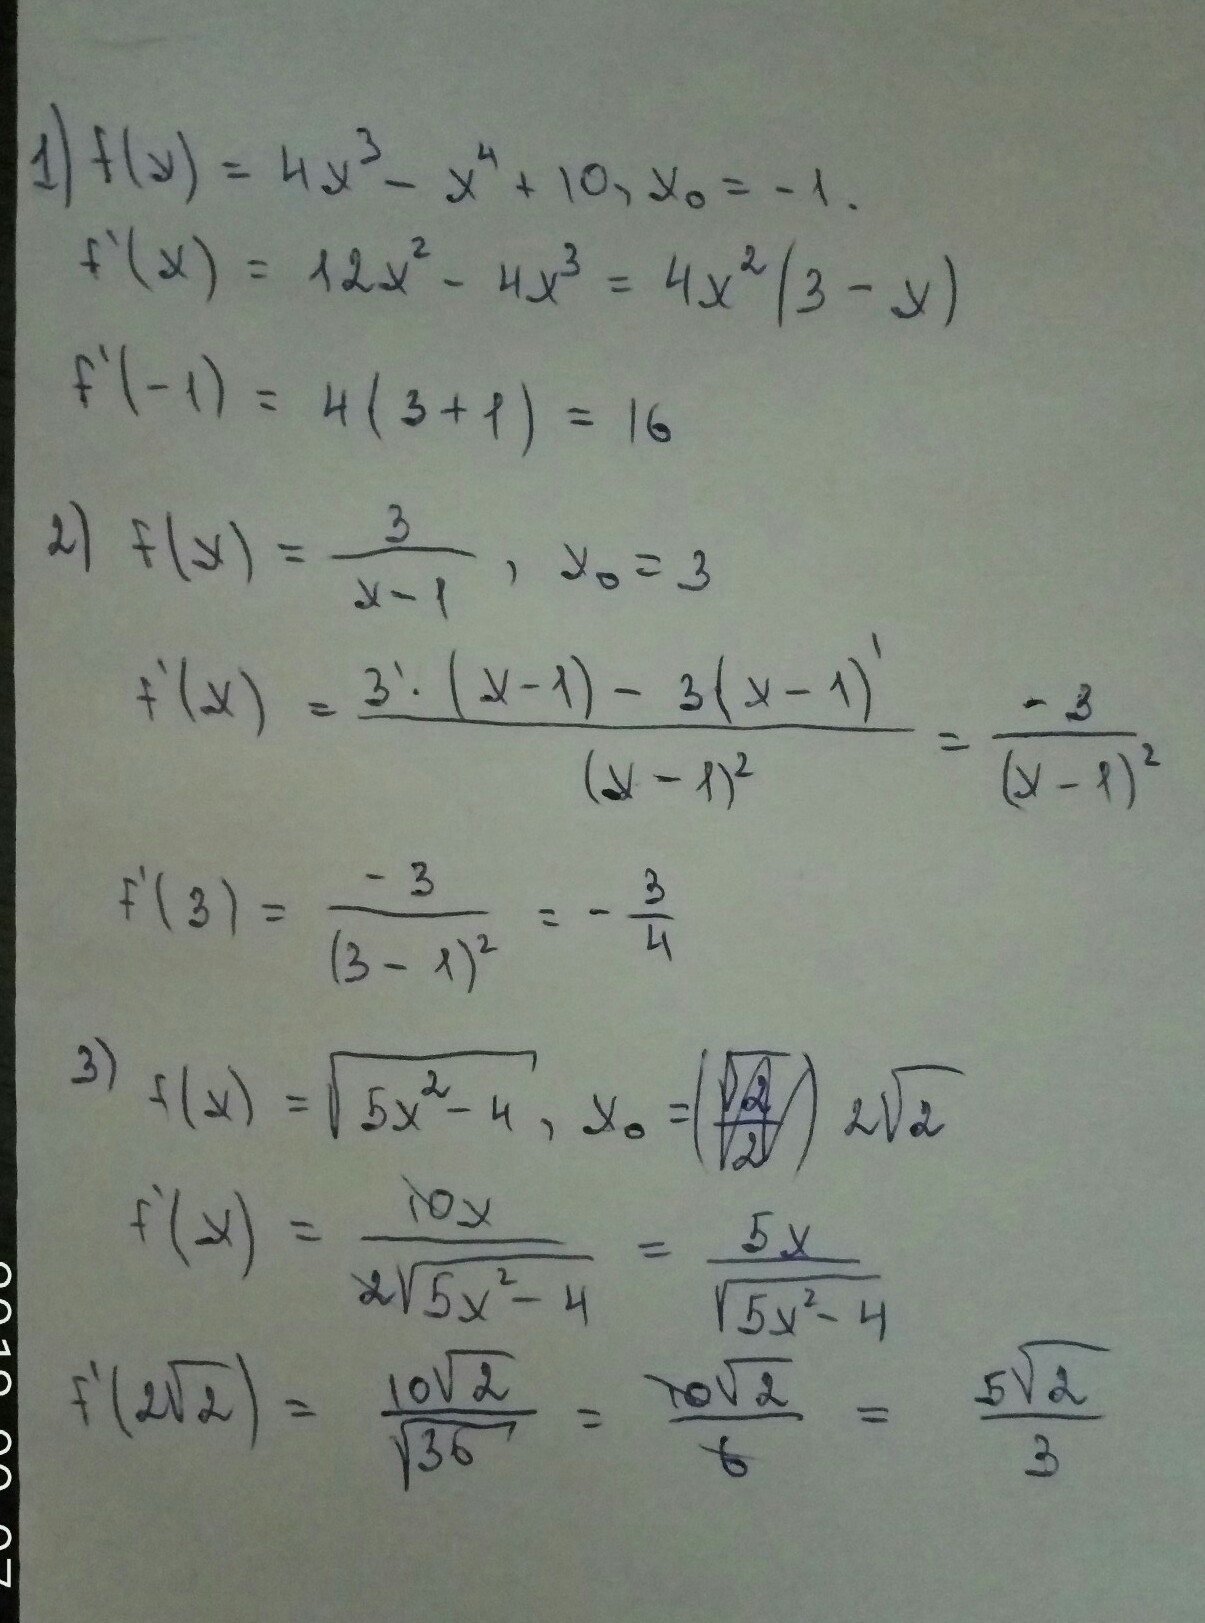 1) f(x) = 4x³ - x⁴ + 10, x₀ = -1.
f'(x) = 12x² - 4x³ = 4x²(3 - x)
f'(-1) = 4(3+1) = 16
2) f(x) = 3/(x-1), x₀ = 3
f'(x) = (3'·(x-1) - 3(x-1)')/(x-1)² = -3/(x-1)²
f'(3) = -3/(3-1)² = -3/4
3) f(x) = √(5x²-4), x₀ = (√2/√2) 2√2
f'(x) = 10x/(2√(5x²-4)) = 5x/√(5x²-4)
f'(2√2) = 10√2/√36 = 10√2/6 = 5√2/3